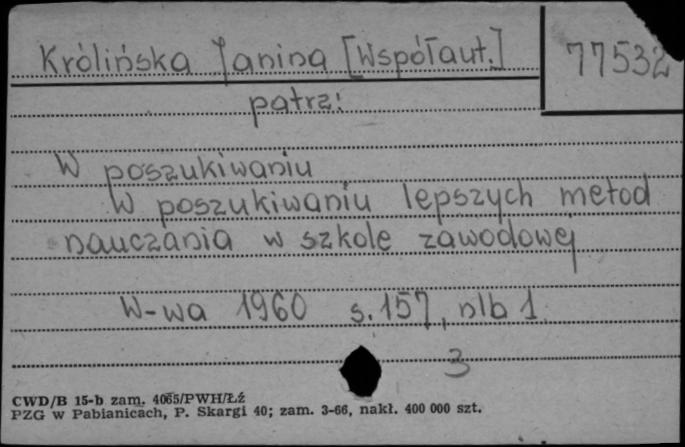 Królińska Janina [Współaut.] 77532
patrz:
W poszukiwaniu
W poszukiwaniu lepszych metod
nauczania w szkole zawodowej
W-wa 1960 s. 157, nlb 1
3
CWD/B 15-b zam. 4065/PWH/Łź
PZG w Pabianicach, P. Skargi 40; zam. 3-66, nakł. 400 000 szt.